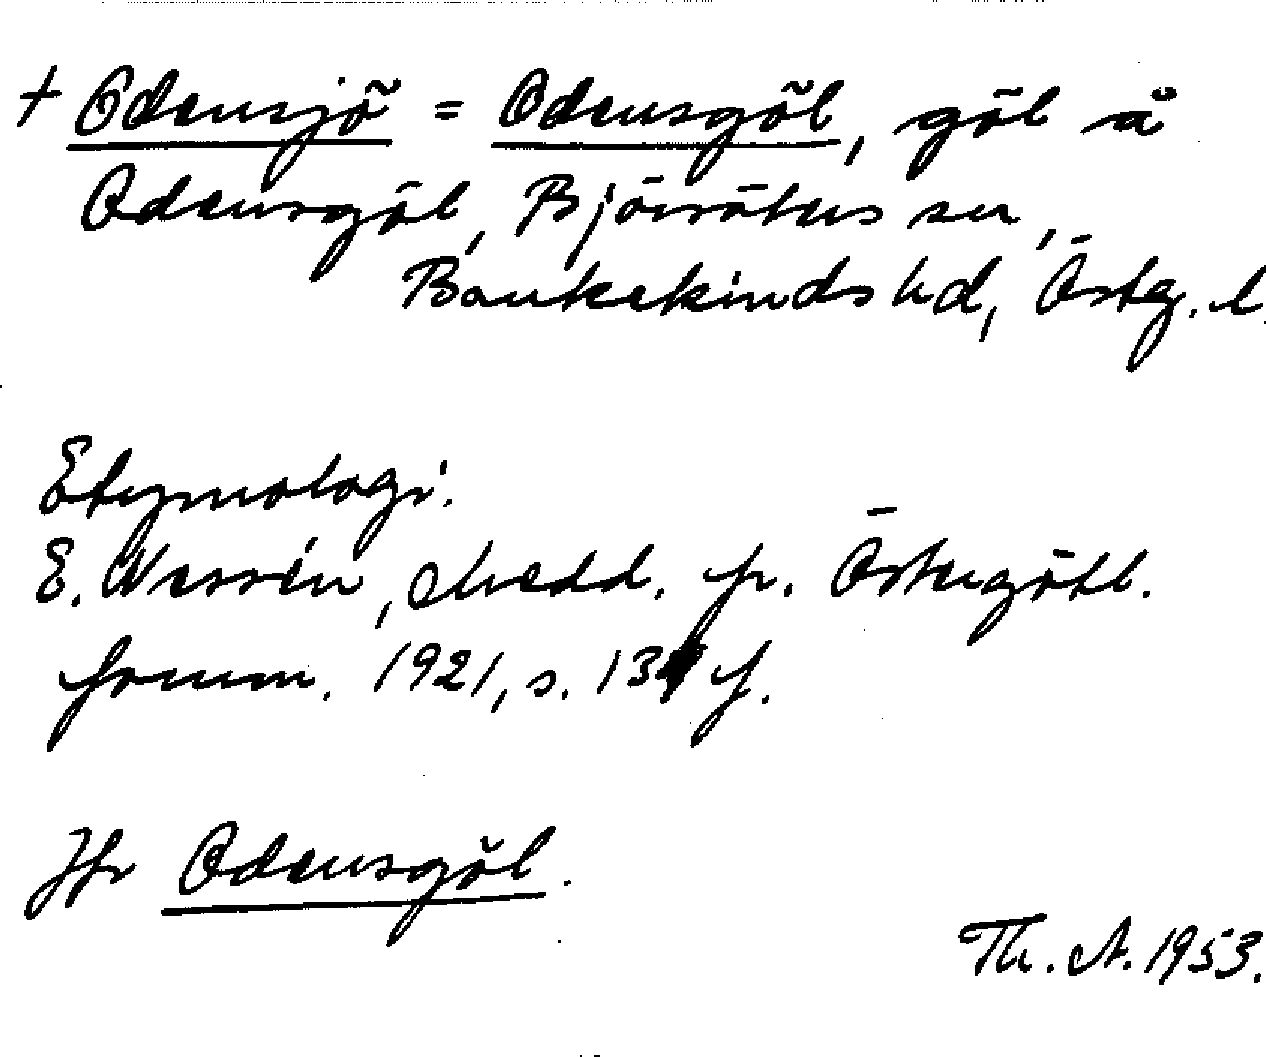 + Odensjö = Odensgöl, göl å
Odensgöl, Björsäters sn,
Bankekinds hd, Östg. l.
Etymologi.
E. Wessén, Medd. fr. Östergötl.
fornm. 1921, s. 13 f.
Jfr Odensgöl.
Th. A. 1953.